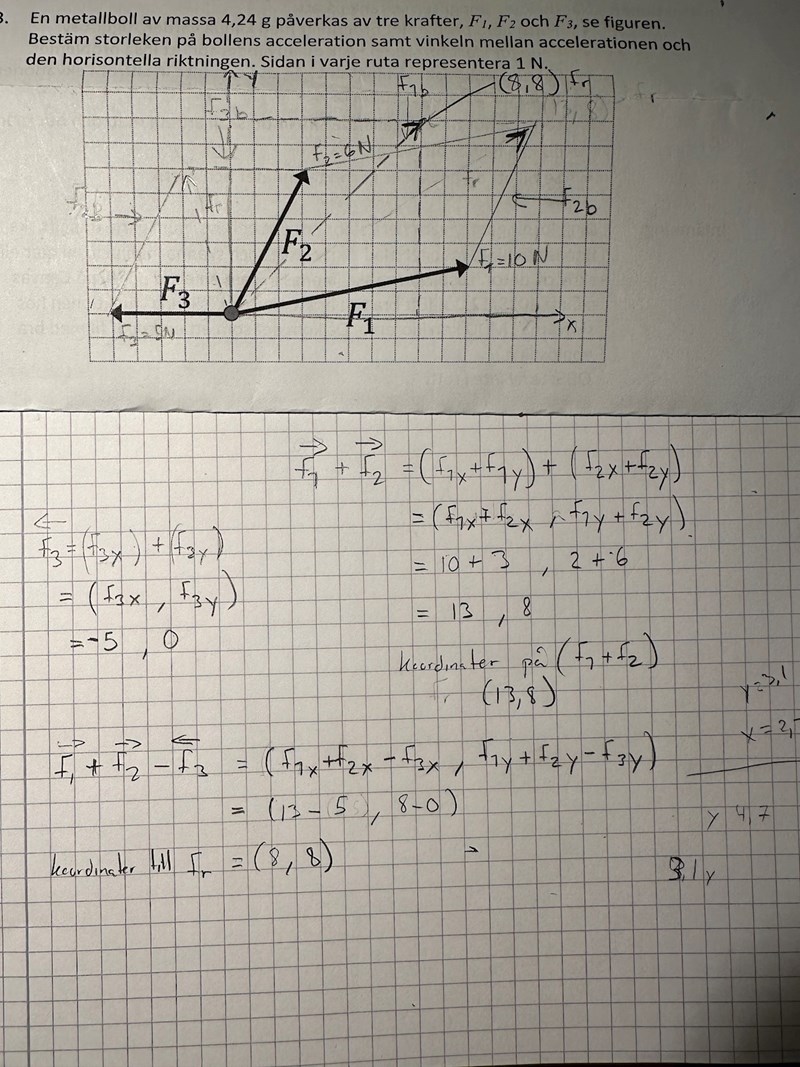 3. En metallboll av massa 4,24 g påverkas av tre krafter, F₁, F₂ och F₃, se figuren.
Bestäm storleken på bollens acceleration samt vinkeln mellan accelerationen och
den horisontella riktningen. Sidan i varje ruta representera 1 N.
y
F₁b
(8,8) Fr
(13,8)
Fr
F₃b
F₂=6N
Fr
Fr
F₂b
F₂
F₁=10 N
F₃
F₁
x
F₃=5N
F₁ + F₂ = (F₁x+F₁y) + (F₂x+F₂y)
= (F₁x+F₂x , F₁y+F₂y)
= 10 + 3 , 2 + 6
= 13 , 8
F₃=(F₃x) + (F₃y)
= (F₃x , F₃y)
= -5 , 0
Koordinater på (F₁+F₂)
(13,8)
y=3,1
x=2,
F₁ + F₂ - F₃ = (F₁x+F₂x-F₃x , F₁y+F₂y-F₃y)
= (13-5 , 8-0)
y 4,7
Koordinater till Fr = (8,8)
3,1 y